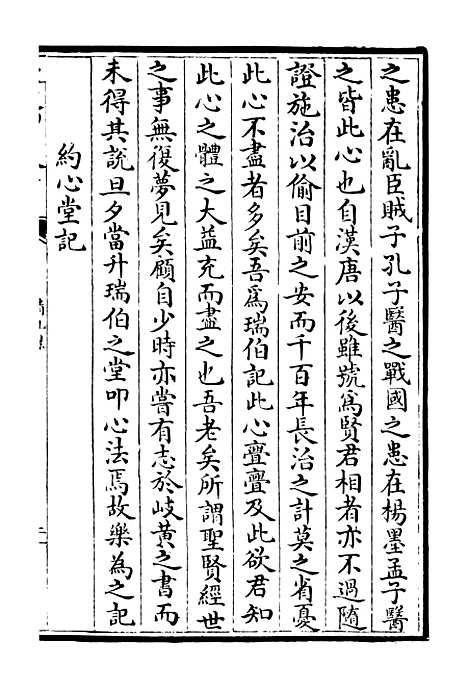 之患在亂臣賊子孔子醫之戰國之患在楊墨孟子醫
之皆此心也自漢唐以後雖號爲賢君相者亦不過隨
證施治以偷目前之安而千百年長治之計莫之省憂
此心不盡者多矣吾爲瑞伯記此心亹亹及此欲君知
此心之體之大益充而盡之也吾老矣所謂聖賢經世
之事無復夢見矣顧自少時亦嘗有志於岐黄之書而
未得其說旦夕當升瑞伯之堂叩心法焉故樂為之記
約心堂記